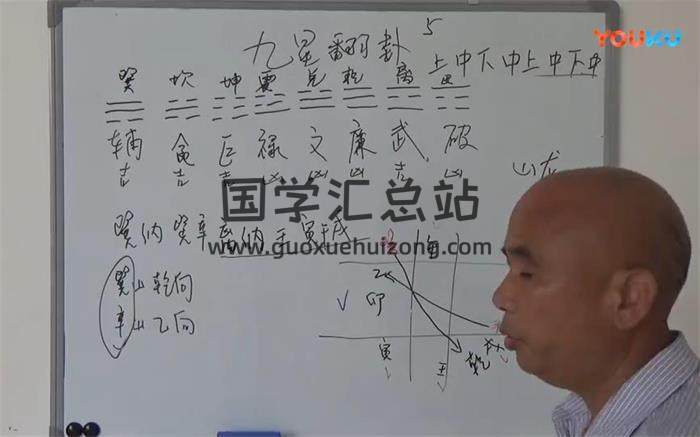 YOUKU
九星翻卦 5
上中下中上中下中
巽 坎 坤 震 兑 乾 离 艮
辅 贪 巨 禄 文 廉 武 破
吉 吉 吉 凶 凶 凶 吉 凶
山龙
国学汇总站
www.guoxuehuizong.com
巽纳 巽辛 离纳壬寅戌
巽山乾向
辛山乙向
乙
卯
寅
壬
乾